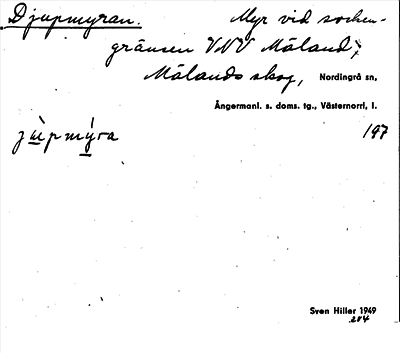 Djupmyran. Myr vid socken-
gränsen VNV Mäland;
Mälands skog, Nordingrå sn,
Ångermanl. s. doms. tg., Västernorrl, l.
jùpmýra 197
Sven Hiller 1949
204